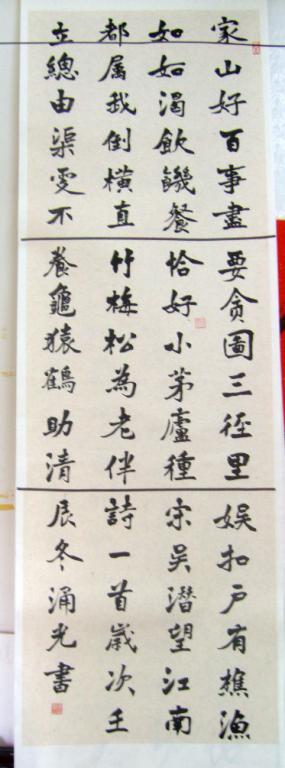 家山好百事盡要贪圖三徑里娱扣户有樵漁
如如渴飲饑餐恰好小茅廬種宋吴潜望江南
都属我倒橫直竹梅松為老伴詩一首歲次壬
立總由渠雯不養龜猿鶴助清辰冬涌光書